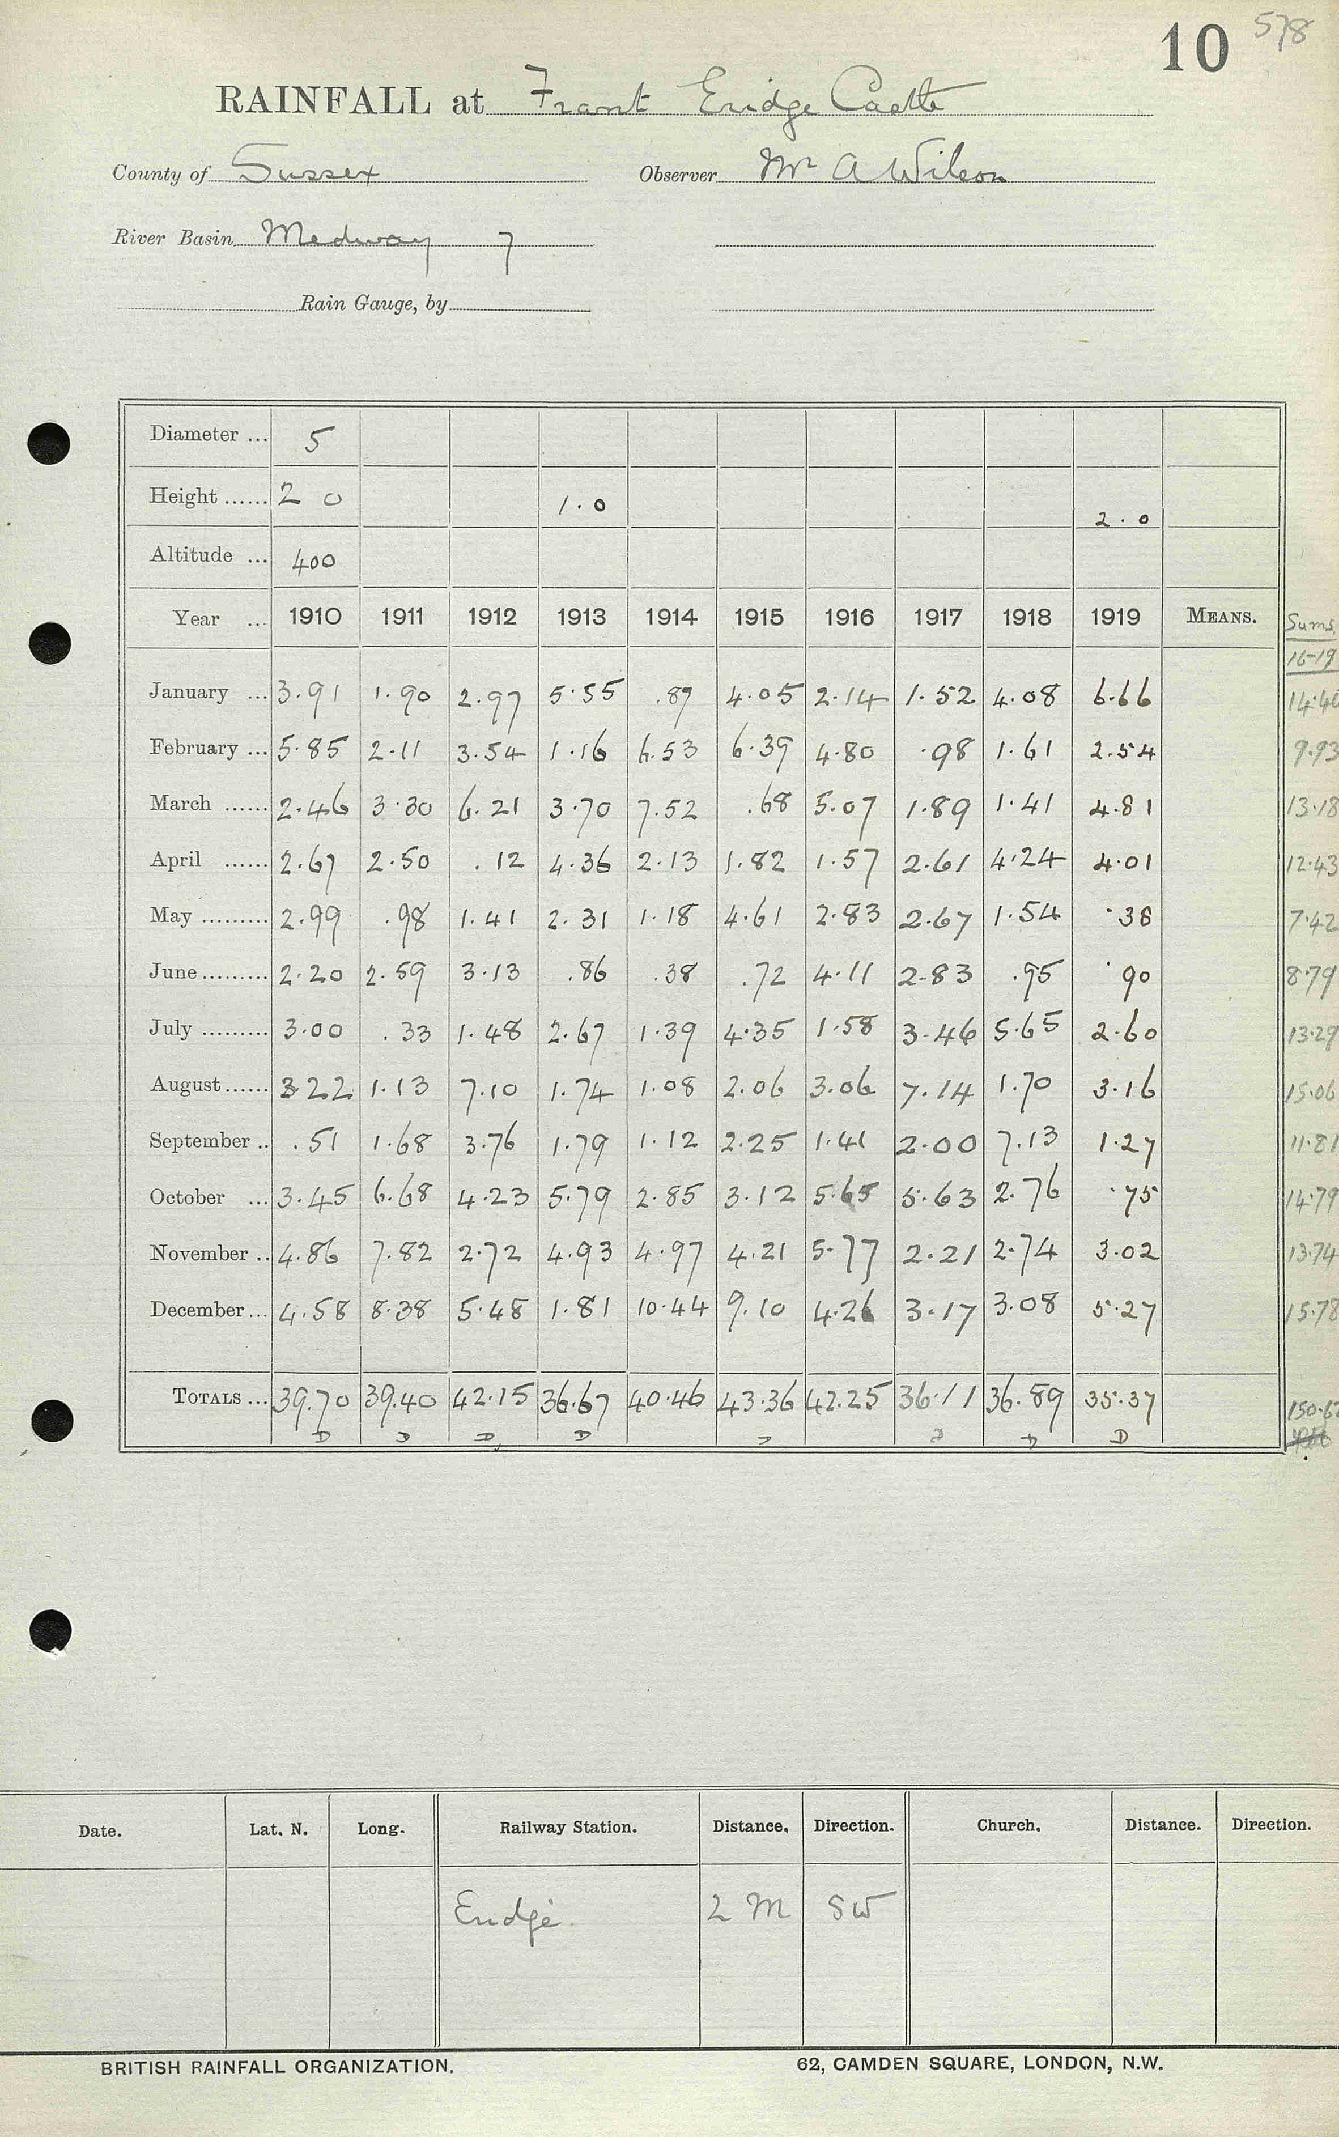 10 578
RAINFALL at Frant Eridge Castle
County of Sussex Observer Mr A Wilson
River Basin Medway 7
Rain Gauge, by
Diameter ... 5
Height ...... 2 0 1.0 2.0
Altitude ... 400
Year ... 1910 1911 1912 1913 1914 1915 1916 1917 1918 1919 MEANS. Sums
16-19
January ... 3.91 1.90 2.97 5.55 .89 4.05 2.14 1.52 4.08 6.66 14.40
February ... 5.85 2.11 3.54 1.16 6.53 6.39 4.80 .98 1.61 2.54 9.93
March ...... 2.46 3.30 6.21 3.70 7.52 .68 5.07 1.89 1.41 4.81 13.18
April ...... 2.67 2.50 .12 4.36 2.13 1.82 1.57 2.61 4.24 4.01 12.43
May ......... 2.99 .98 1.41 2.31 1.18 4.61 2.83 2.67 1.54 .38 7.42
June ......... 2.20 2.59 3.13 .86 .38 .72 4.11 2.83 .95 .90 8.79
July ......... 3.00 .33 1.48 2.67 1.39 4.35 1.58 3.46 5.65 2.60 13.29
August ...... 3.22 1.13 7.10 1.74 1.08 2.06 3.06 7.14 1.70 3.16 15.06
September .. .51 1.68 3.76 1.79 1.12 2.25 1.41 2.00 7.13 1.27 11.81
October ... 3.45 6.68 4.23 5.79 2.85 3.12 5.65 5.63 2.76 .75 14.79
November .. 4.86 7.82 2.72 4.93 4.97 4.21 5.77 2.21 2.74 3.02 13.74
December ... 4.58 8.38 5.48 1.81 10.44 9.10 4.26 3.17 3.08 5.27 15.78
TOTALS ... 39.70 39.40 42.15 36.67 40.46 43.36 42.25 36.11 36.89 35.37 150.62
D D D D D D D D
Date. Lat. N. Long. Railway Station. Distance. Direction. Church. Distance. Direction.
Eridge 2 M SW
BRITISH RAINFALL ORGANIZATION. 62, CAMDEN SQUARE, LONDON, N.W.